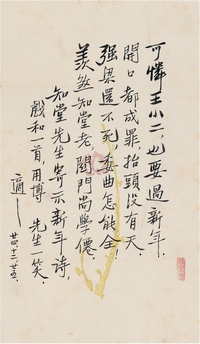 可憐王小二,也要過新年.
開口都成罪,抬頭沒有天.
强梁還不死,委曲怎能全!
羨煞知堂老,閉門尚學僊.
知堂先生寄示新年詩,
戲和一首,用博 先生一笑.
適之
廿四.十二.廿五.